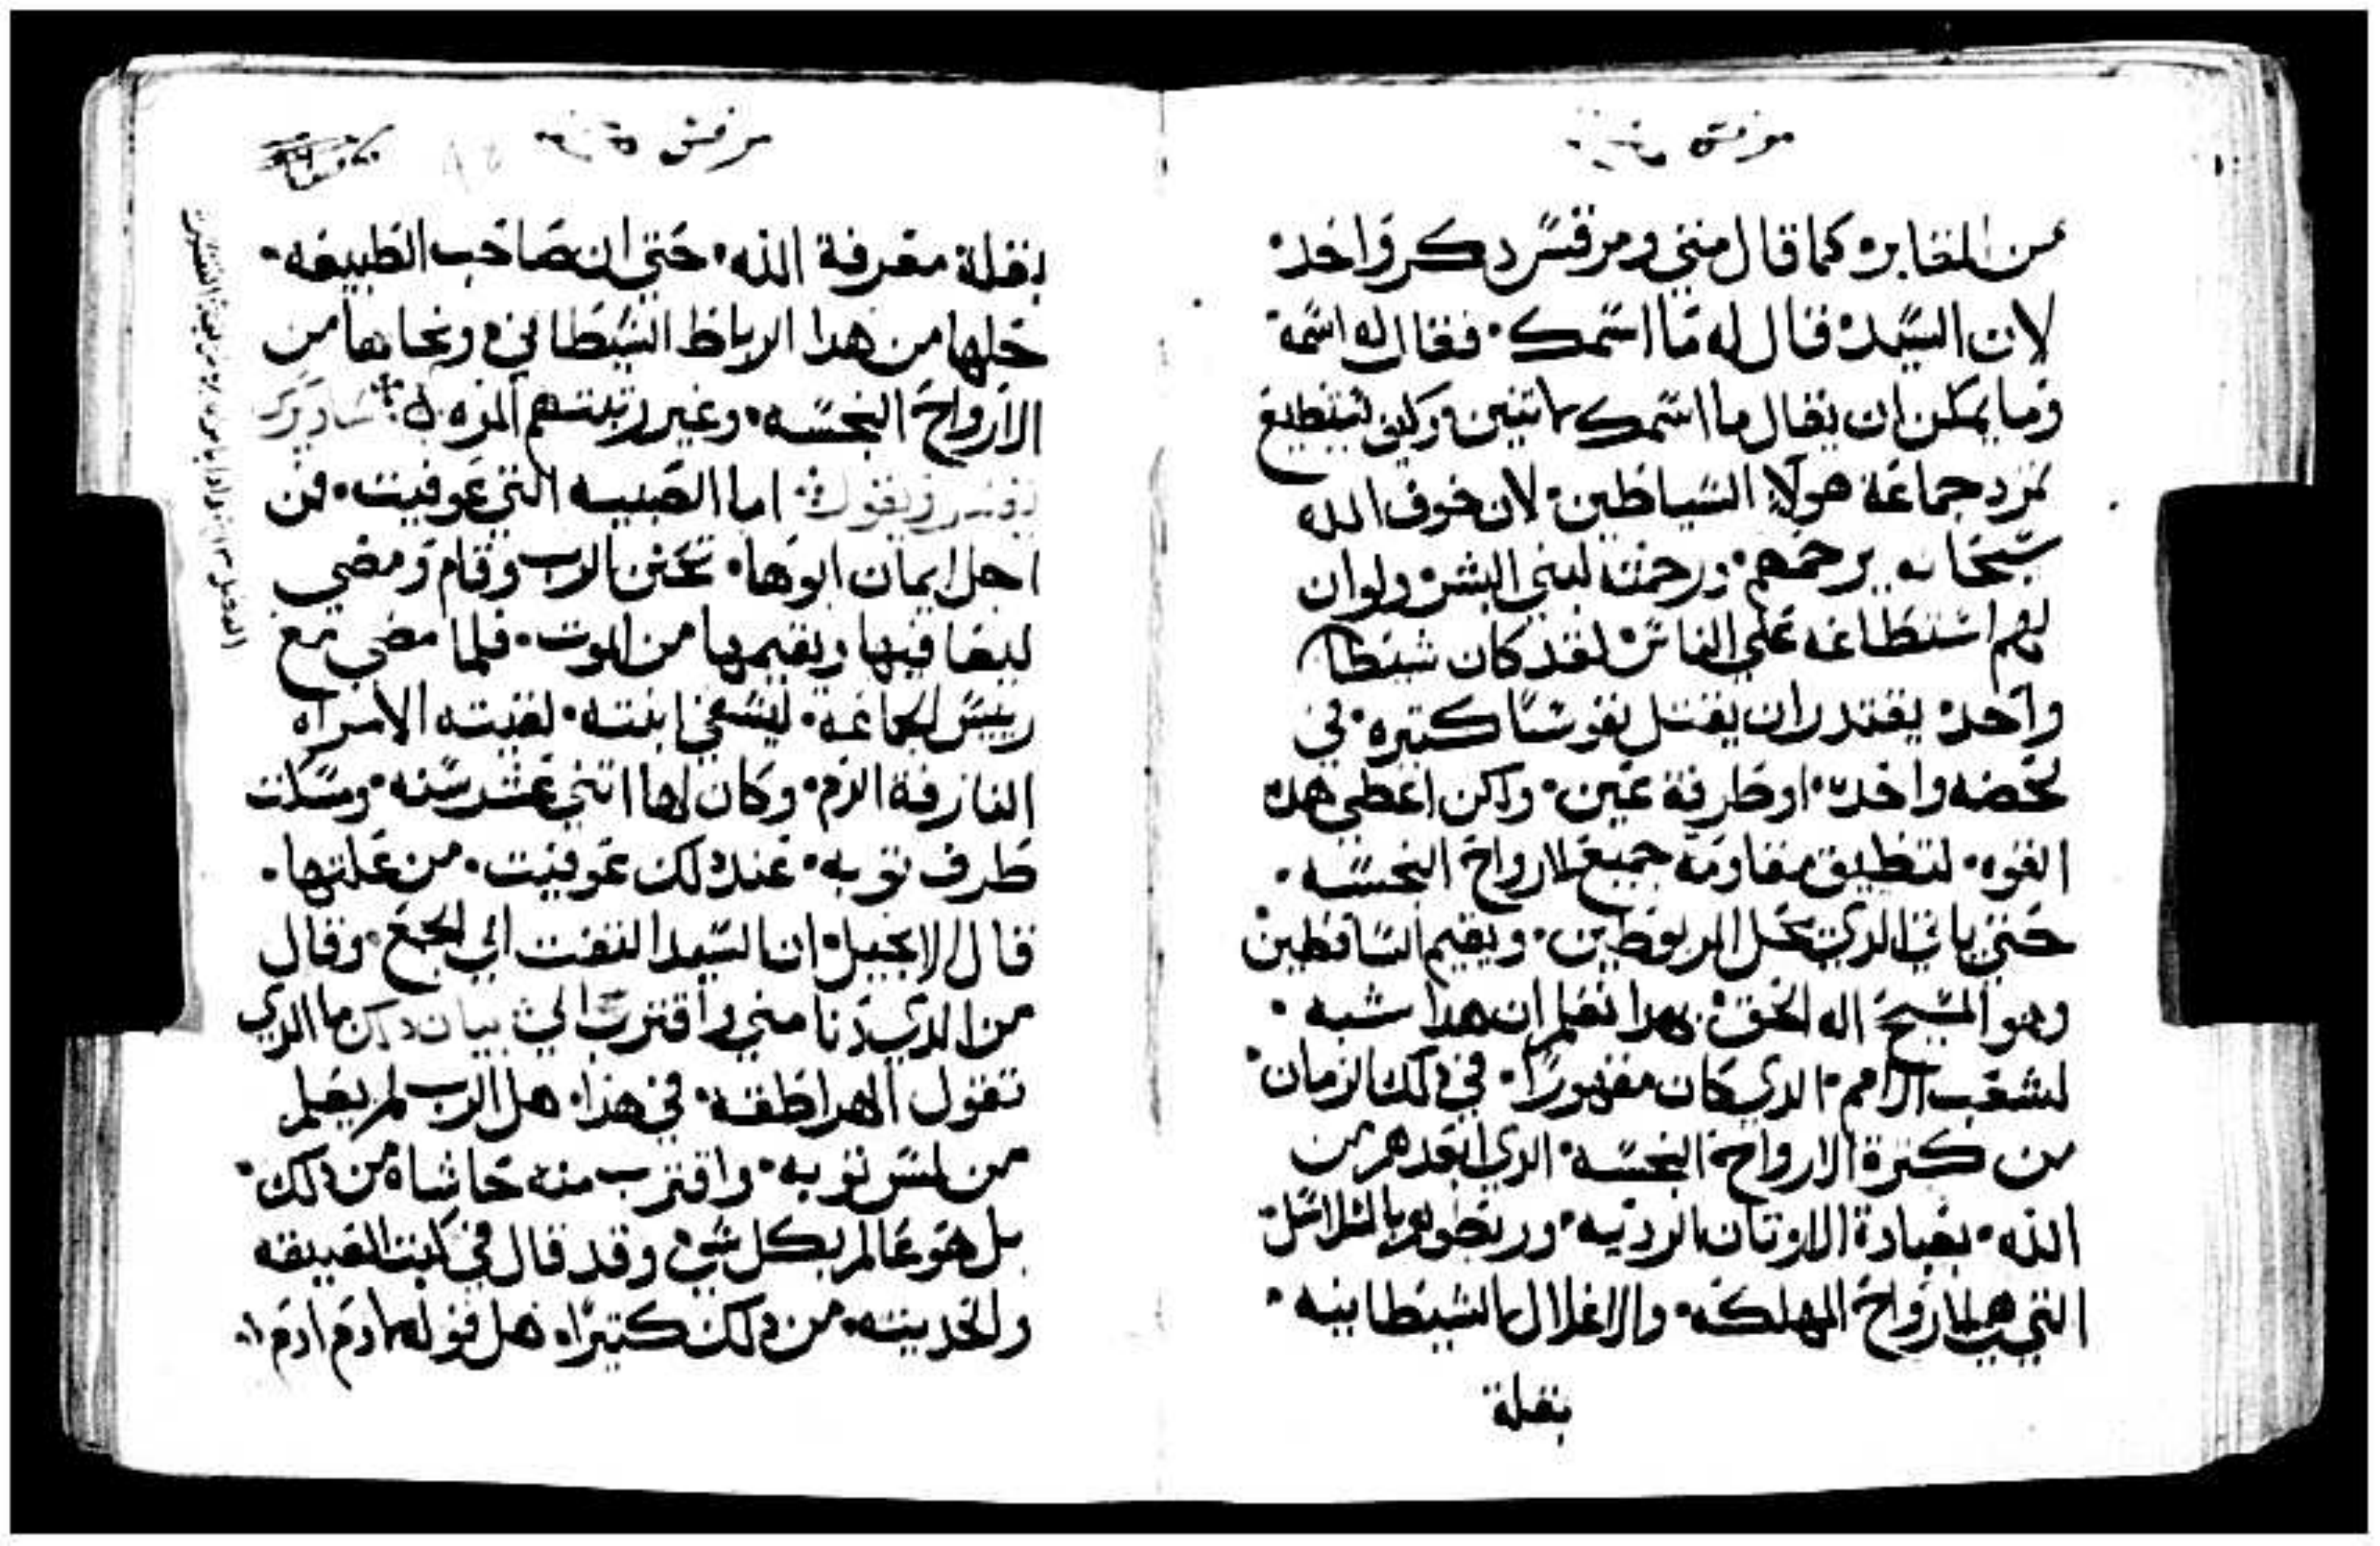 مرقس
من المقابر، كما قال متي ومرقس دكر واحد،
لان السيد، قال له ما اسمك، فقال له اسمه
وما يمكن ان يقال ما اسمك ماتنين وكيف تستطيع
تمرد جماعة هولاء الشياطين، لان خوف الله
سبحانه يرحمهم، ورحمته لبني البشر، ولو ان
لهم استطاعه علي الناس لقد كان شيطان
واحد، يقتدر ان يقتل نفوسا كتيره، في
لحضه واحده، او طرفة عين، ولكن اعطي هده
القوه، لتطيق مقاومة جميع الارواح النجسه،
حتي ياتي الدي يحل المربوطين، ويقيم الساقطين
وهو المسيح اله الحق، بهدا نعلم ان هدا شبه،
لشعب الامم، الدي كان مقهورا، في دلك الزمان،
من كترة الارواح النجسة، الدي ابعدهم من
الله، بعبادة الاوتان الرديه، وربطوهم بالسلاسل
التي هي الارواح المهلكه، والاغلال الشيطانيه،
بقلة
مرقس
بقلة معرفة الله، حتي ان صاحب الطبيعه،
حلها من هدا الرباط الشيطاني، ونجاها من
الارواح النجسه، وغير رتبتهم المزه
يفسر ويقول، اما الصبيه التي عوفيت، فمن
اجل ايمان ابوها، تحنن الرب وقام ومضي
ليعافيها ويقيمها من الموت، فلما مضي مع
رييس الجماعه، ليشفي ابنته، لقيته الامراه
النازفة الدم، وكان لها اتني عشر سنه، ومسكت
طرف توبه، عند دلك عوفيت، من علتها،
قال الانجيل، ان السيد التفت الي الجمع، وقال
من الدي دنا مني واقترب الي، بيان دلك ما الدي
تقول الهراطقه، في هدا، هل الرب لم يعلم
من لمس توبه، واقترب منه حاشاه من دلك،
بل هو عالم بكل شي، وقد قال في كتبه العتيقه
والحديته، من دلك كتيرا، هل قوله يا ادم ادم